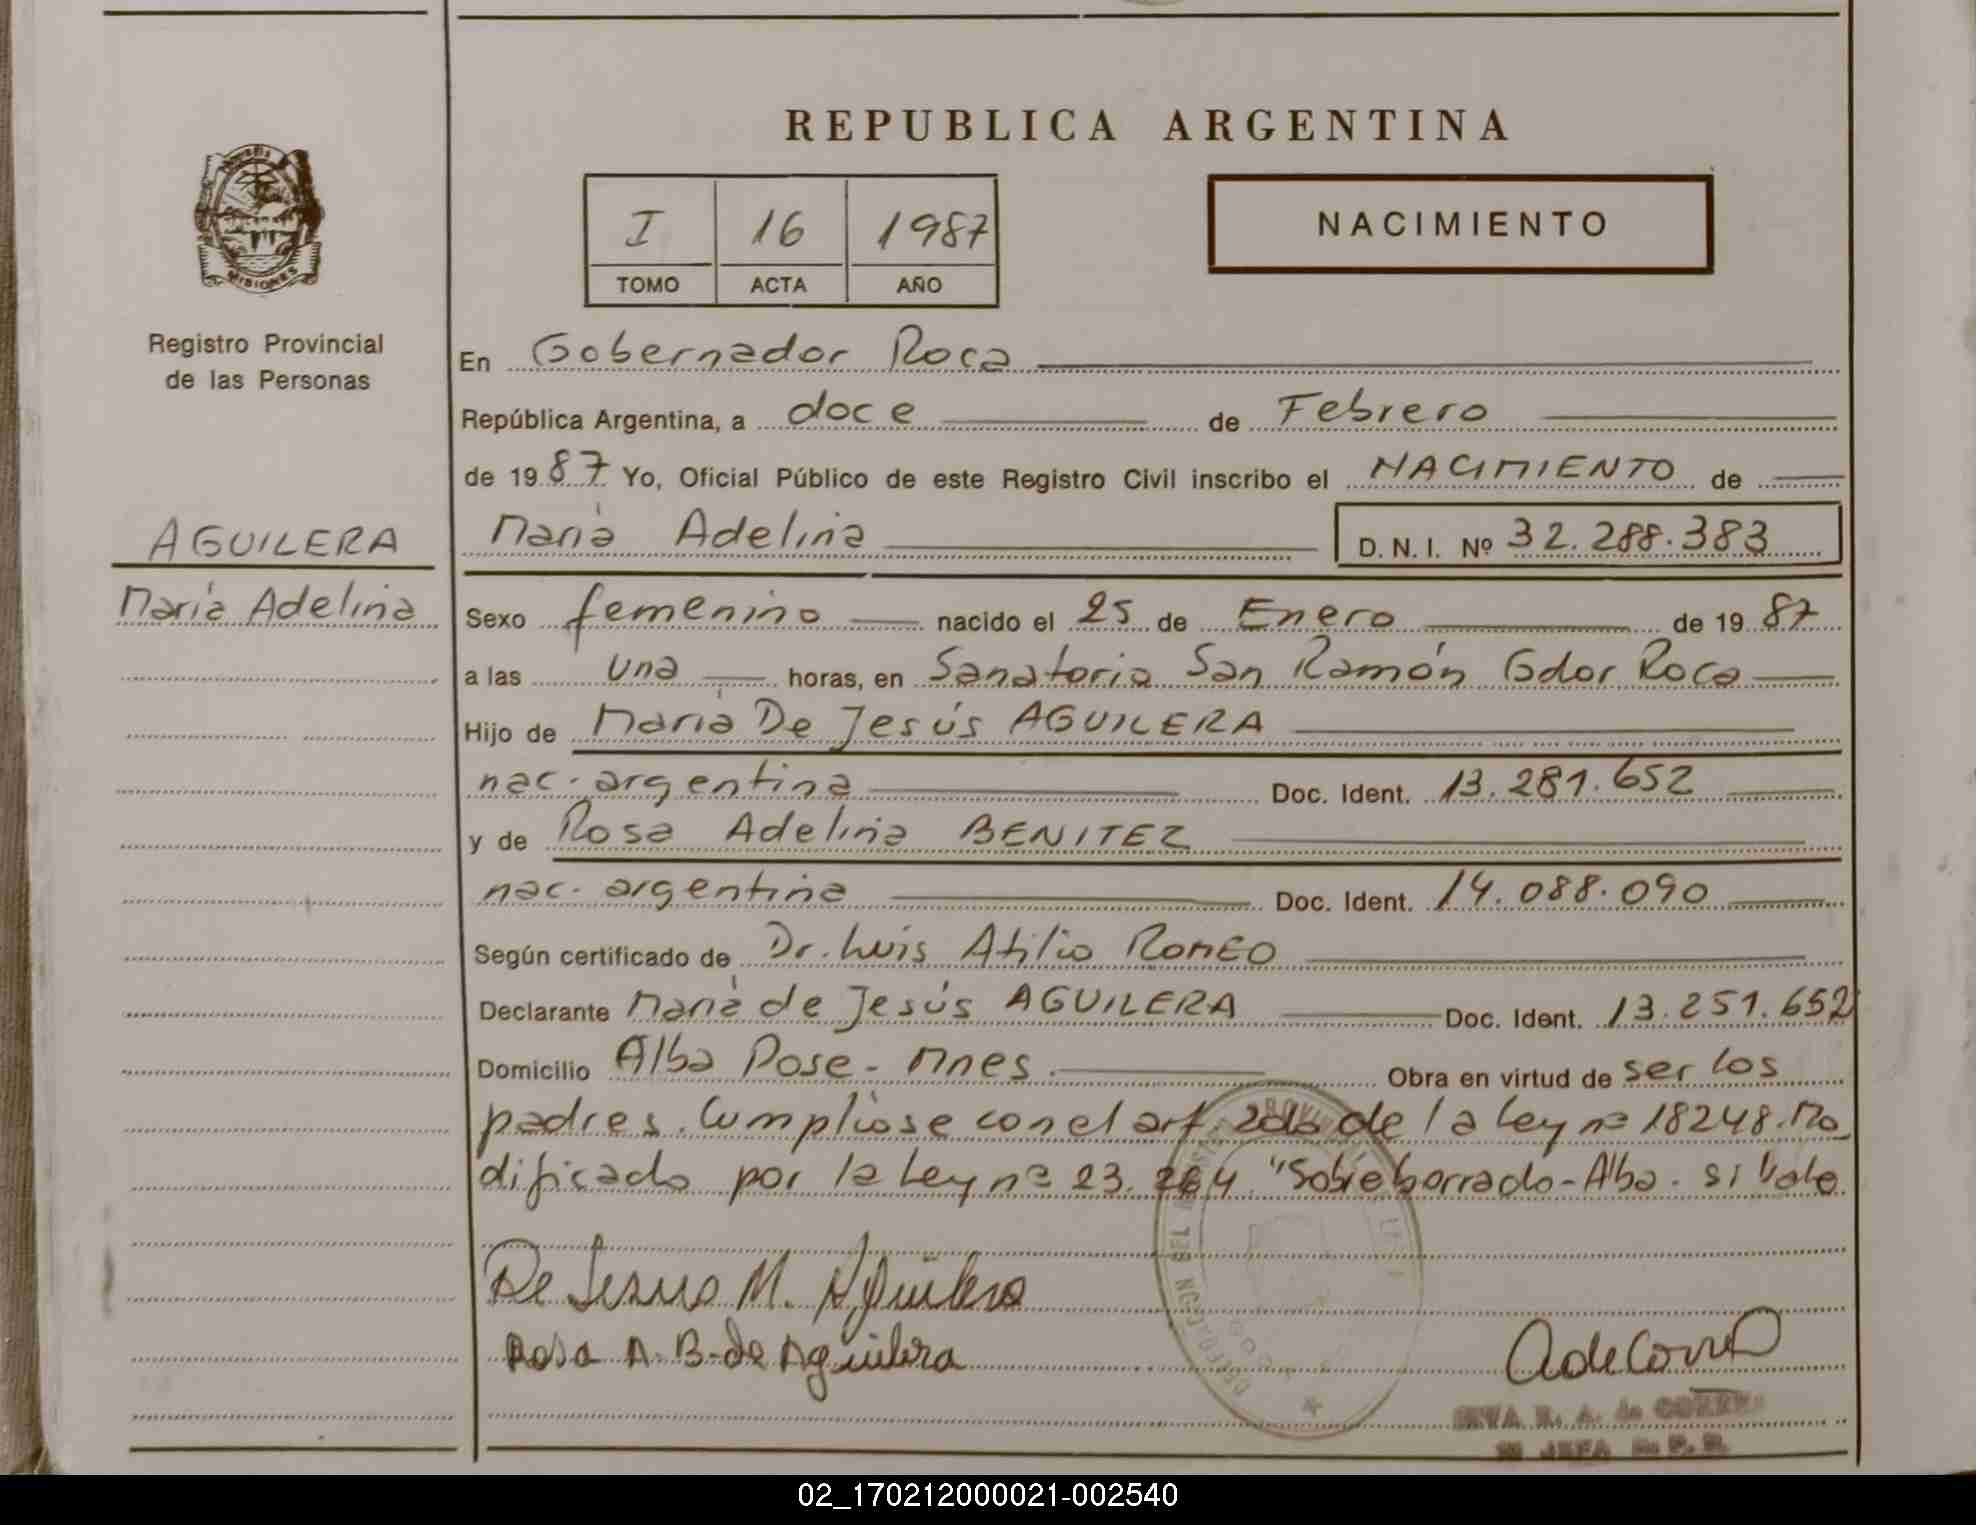 REPUBLICA ARGENTINA
MISIONES
Registro Provincial
de las Personas
I 16 1987
TOMO ACTA AÑO
NACIMIENTO
AGUILERA
María Adelina
En Gobernador Roca
República Argentina, a doce de Febrero
de 1987 Yo, Oficial Público de este Registro Civil inscribo el NACIMIENTO de
María Adelina D. N. I. Nº 32.288.383
Sexo femenino nacido el 25 de Enero de 1987
a las una horas, en Sanatorio San Ramón Gdor Roca
Hijo de María De Jesús AGUILERA
nac. argentina Doc. Ident. 13.281.652
y de Rosa Adelina BENITEZ
nac. argentina Doc. Ident. 14.088.090
Según certificado de Dr. Luis Atilio ROMEO
Declarante María de Jesús AGUILERA Doc. Ident. 13.251.652
Domicilio Alba Pose - Mnes. Obra en virtud de ser los
padres. Cumpliose con el art 2do de la Ley nº 18248. Mo
dificado por la Ley nº 23.264 "Sobreborrado - Alba. si Vale
De Jesus M. Aguilera
Rosa A. B. de Aguilera
A de Correa
R. A. de CORREA
JEFA
02_170212000021-002540